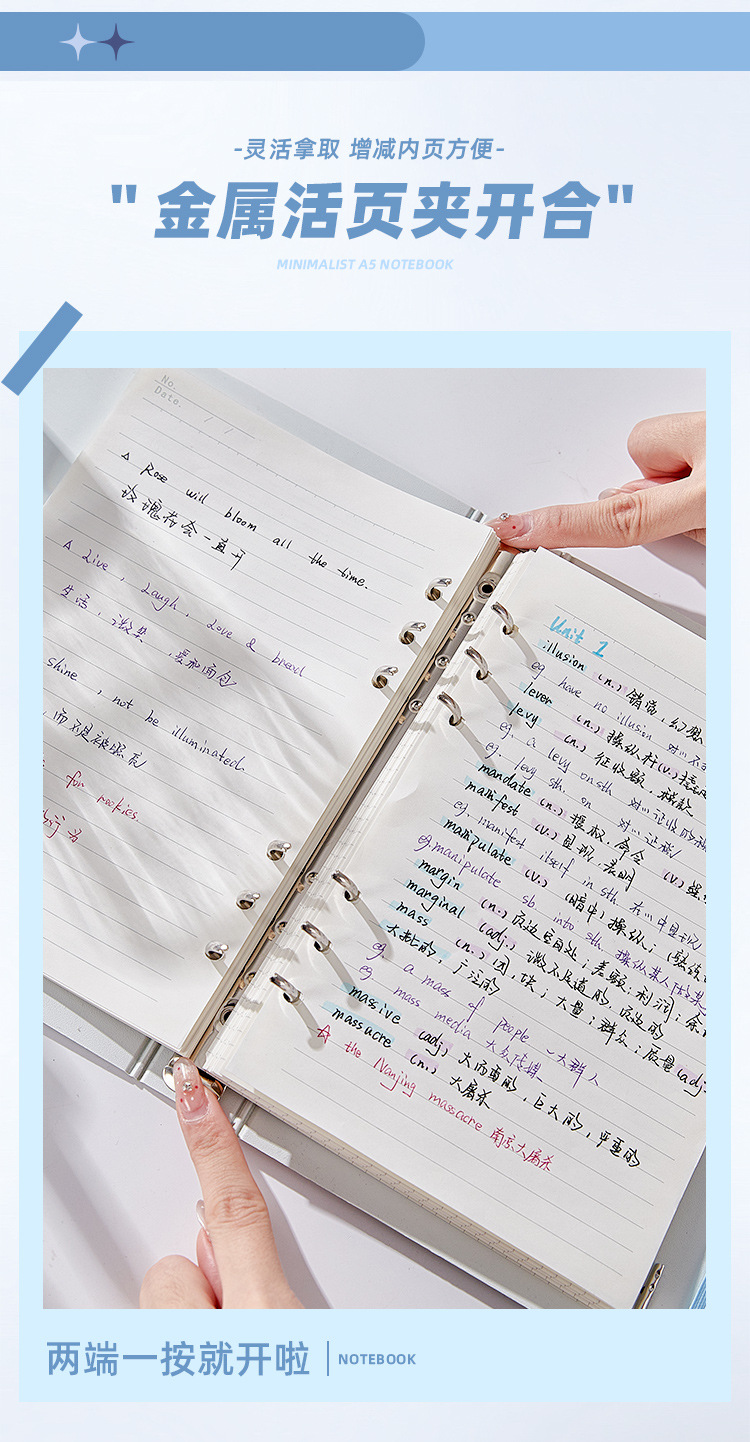 -灵活拿取 增减内页方便-
"金属活页夹开合"
MINIMALIST A5 NOTEBOOK
No.
Date.
Rose will bloom all the time.
玫瑰花会一直开
Live, Laugh, Love & bread
生活, 微笑, 爱和面包
shine, not be illuminated.
,而不是被照亮
for rookies.
Unit 1
illusion (n.) 错觉,幻想
eg have no illusion 对…不
lever (n.) 操纵杆 (v.)
levy (n.) 征收额,税款
eg. a levy on sth 对…征收
eg. levy sth. on 对…征税
mandate (n.) 授权,命令 (v.)
manifest (v.) 显现,表明
eg. manifest itself in sth. 在…中显现
manipulate (v.) (暗中)操纵;
eg. manipulate sb into sth 操纵某人做某
margin (n.) 页边空白处;差额;利润;余
marginal (adj) 微不足道的,页边的
mass (n.) 团,块;大量;群众;质量 (adj)
大批的,广泛的
eg. a mass of people 一大群人
eg mass media 大众传媒
massive (adj) 大而重的,巨大的,严重的
massacre (n.) 大屠杀
☆ the Nanjing massacre 南京大屠杀
两端一按就开啦
NOTEBOOK